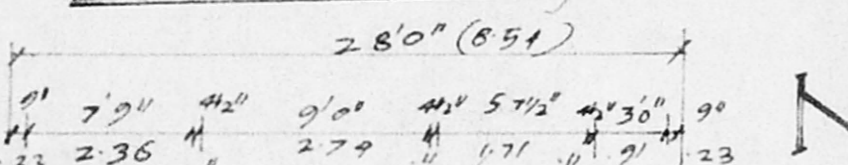 28'0" (8.54)
9" 7'9" 4½" 9'0" 4½" 5'7½" 4½" 3'0" 9"
.23 2.36 " 2.74 " 1.71 " .91 .23